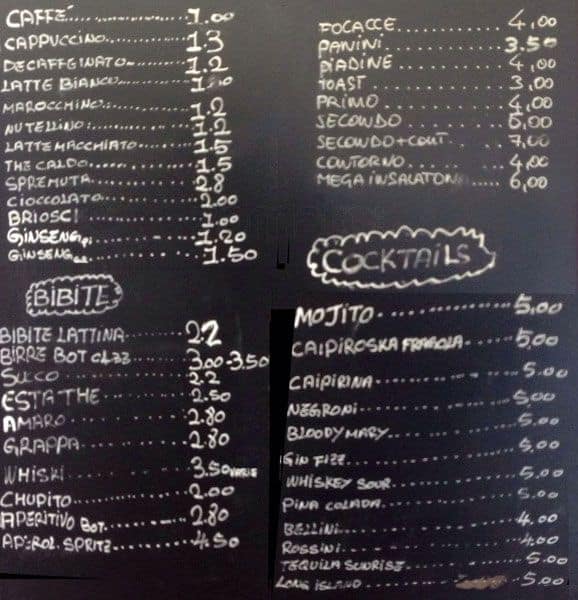 CAFFÉ 1.00
CAPPUCCINO 1.3
DECAFFEINATO 1.2
LATTE BIANCO
MAROCCHINO 1.2
NUTELLINO 1.2
LATTE MACCHIATO 1.5
THE CALDO 1.5
SPREMUTA 2.8
CIOCCOLATO 2.00
BRIOSCI 1.00
GINSENG 1.20
GINSENG 1.50
BIBITE
BIBITE LATTINA 2.2
BIRRE BOT 3.00-3.50
SUCCO 2.2
ESTA THE 2.50
AMARO 2.80
GRAPPA 2.80
WHISKI 3.50
CHUPITO 2.00
APERITIVO BOT. 2.80
APEROL SPRITZ 4.50
FOCACCE 4,00
PANINI 3.50
PIADINE 4,00
TOAST 3,00
PRIMO 4,00
SECONDO 6,00
SECONDO+CONT. 7,00
CONTORNO 4,00
MEGA INSALATONA 6,00
COCKTAILS
MOJITO 5,00
CAIPIROSKA FRAGOLA 5,00
CAIPIRINA 5.00
NEGRONI 5,00
BLOODY MARY 5.00
GIN FIZZ 5,00
WHISKEY SOUR 5.00
PINA COLADA 5.00
BELLINI 4.00
ROSSINI 4.00
TEQUILA SUNRISE 5.00
LONG ISLAND 5.00